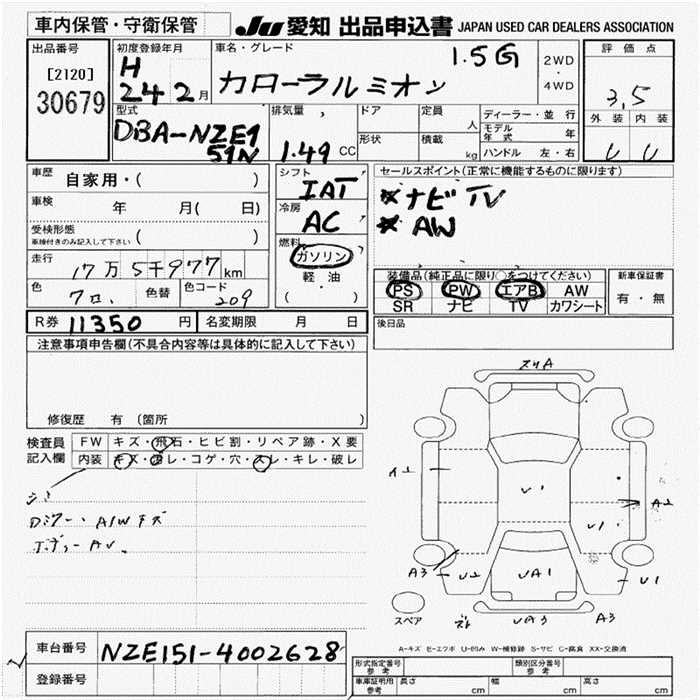 車内保管・守衛保管
JU 愛知 出品申込書 JAPAN USED CAR DEALERS ASSOCIATION
出品番号
[2120]
30679
初度登録年月
H
24 2月
車名・グレード
1.5G
カローラルミオン
2WD
・
4WD
評価点
3.5
外装 内装
型式
DBA-NZE1
51N
排気量
1.49 CC
ドア
形状
定員
人
積載
kg
ディーラー・並行
モデル年式 年
ハンドル 左・右
車歴 自家用・( )
車検 年 月( 日)
受検形態
車検付きのみ記入して下さい ( )
走行 17万5千977km
色 クロ、 色替 色コード 209
シフト
IAT
冷房
AC
燃料
ガソリン
軽・油
( )
セールスポイント(正常に機能するものに限ります)
※ナビTV
※AW
装備品(純正品に限り○をつけてください)
PS PW エアB AW
SR ナビ TV カワシート
新車保証書
有・無
R券 11350 円 名変期限 月 日
後日品
注意事項申告欄(不具合内容等は具体的に記入して下さい)
修復歴 有 (箇所 )
検査員
記入欄
FW キズ・飛石・ヒビ割・リペア跡・X要
内装 キズ・汚レ・コゲ・穴・スレ・キレ・破レ
A/Wキズ
スリA
A1
U1
A2
U1
A3
U2
UA1
U1
スペア
UA3
A3
A-キズ E-エクボ U-凹み W-補修跡 S-サビ C-腐食 XX-交換済
車台番号 NZE151-4002628
登録番号
型式指定番号
参考
類別区分番号
参考
車庫証明用
参考
長さ cm 幅 cm 高さ cm